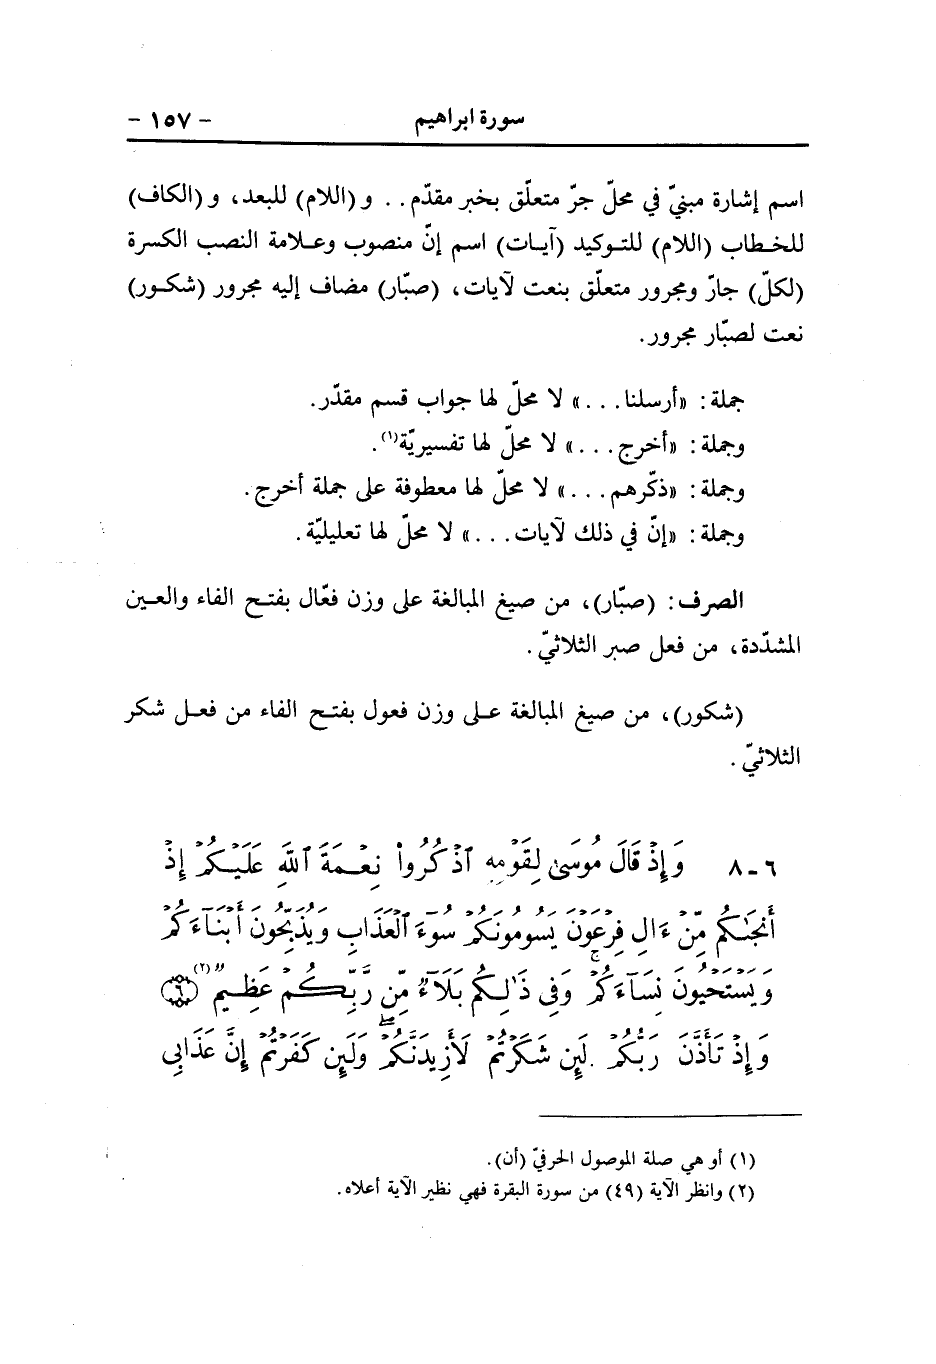 سورة ابراهيم
- ١٥٧ -
اسم إشارة مبنيّ في محلّ جرّ متعلّق بخبر مقدّم . . و (اللام) للبعد، و (الكاف)
للخطاب (اللام) للتوكيد (آيات) اسم إنّ منصوب وعلامة النصب الكسرة
(لكلّ) جارّ ومجرور متعلّق بنعت لآيات، (صبّار) مضاف إليه مجرور (شكور)
نعت لصبّار مجرور.
جملة: «أرسلنا. . .» لا محلّ لها جواب قسم مقدّر.
وجملة: «أخرج. . .» لا محلّ لها تفسيريّة(١).
وجملة: «ذكّرهم. . .» لا محلّ لها معطوفة على جملة أخرج.
وجملة: «إنّ في ذلك لآيات. . .» لا محلّ لها تعليليّة.
الصرف: (صبّار)، من صيغ المبالغة على وزن فعّال بفتح الفاء والعين
المشدّدة، من فعل صبر الثلاثيّ.
(شكور)، من صيغ المبالغة على وزن فعول بفتح الفاء من فعل شكر
الثلاثيّ.
٦ـ٨ وَإِذْ قَالَ مُوسَىٰ لِقَوْمِهِ ٱذْكُرُوا۟ نِعْمَةَ ٱللَّهِ عَلَيْكُمْ إِذْ
أَنجَىٰكُم مِّنْ ءَالِ فِرْعَوْنَ يَسُومُونَكُمْ سُوٓءَ ٱلْعَذَابِ وَيُذَبِّحُونَ أَبْنَآءَكُمْ
وَيَسْتَحْيُونَ نِسَآءَكُمْ ۚ وَفِى ذَٰلِكُم بَلَآءٌ مِّن رَّبِّكُمْ عَظِيمٌ(٢) ٦
وَإِذْ تَأَذَّنَ رَبُّكُمْ لَئِن شَكَرْتُمْ لَأَزِيدَنَّكُمْ ۖ وَلَئِن كَفَرْتُمْ إِنَّ عَذَابِى
(١) أو هي صلة الموصول الحرفيّ (أن).
(٢) وانظر الآية (٤٩) من سورة البقرة فهي نظير الآية أعلاه.